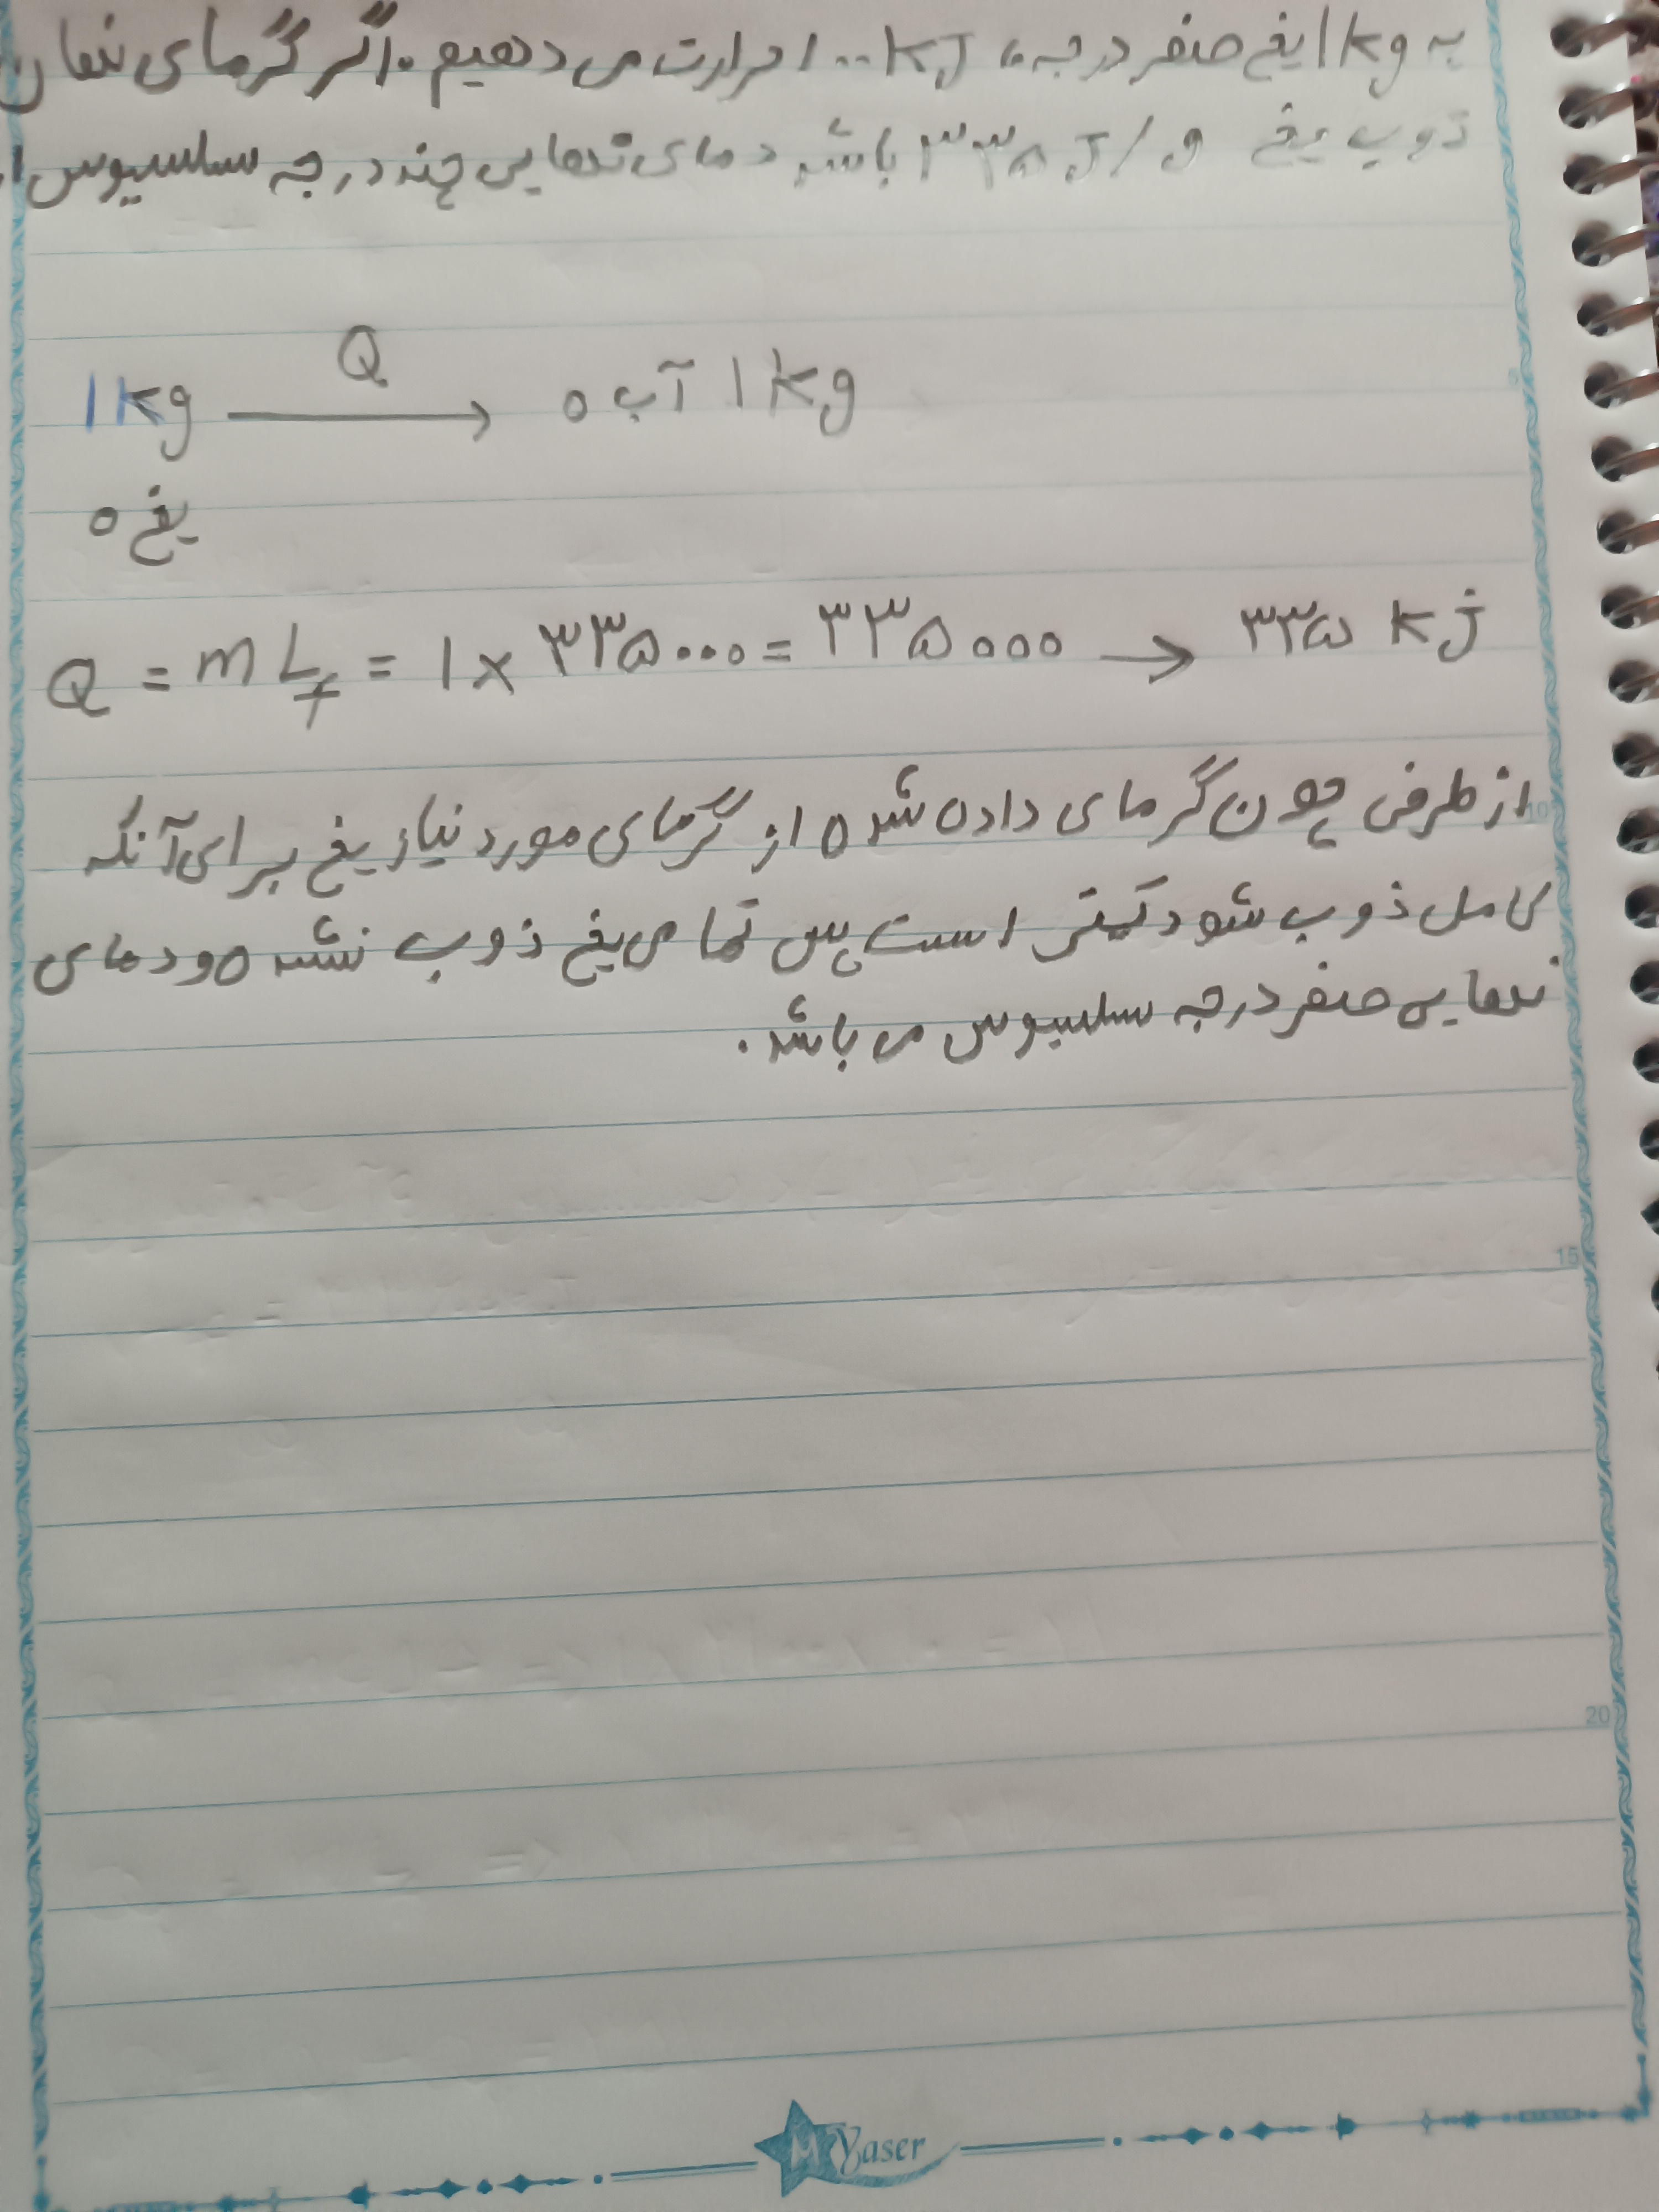 به 1kg یخ صفر درجه، ۱۰۰ kJ حرارت می دهیم. اگر گرمای نهان
ذوب یخ ۳۳۵ J/g باشد دمای نهایی چند درجه سلسیوس ا
1kg ⟶ Q آب ۰ 1kg
یخ ۰
Q = mLf = 1 × ۳۳۵۰۰۰ = ۳۳۵۰۰۰ → ۳۳۵ kJ
از طرفی چون گرمای داده شده از گرمای مورد نیاز یخ برای آنکه
کامل ذوب شود کمتر است پس تمامی یخ ذوب نشده و دمای
نهایی صفر درجه سلسیوس می باشد.
10
15
20
M Yaser